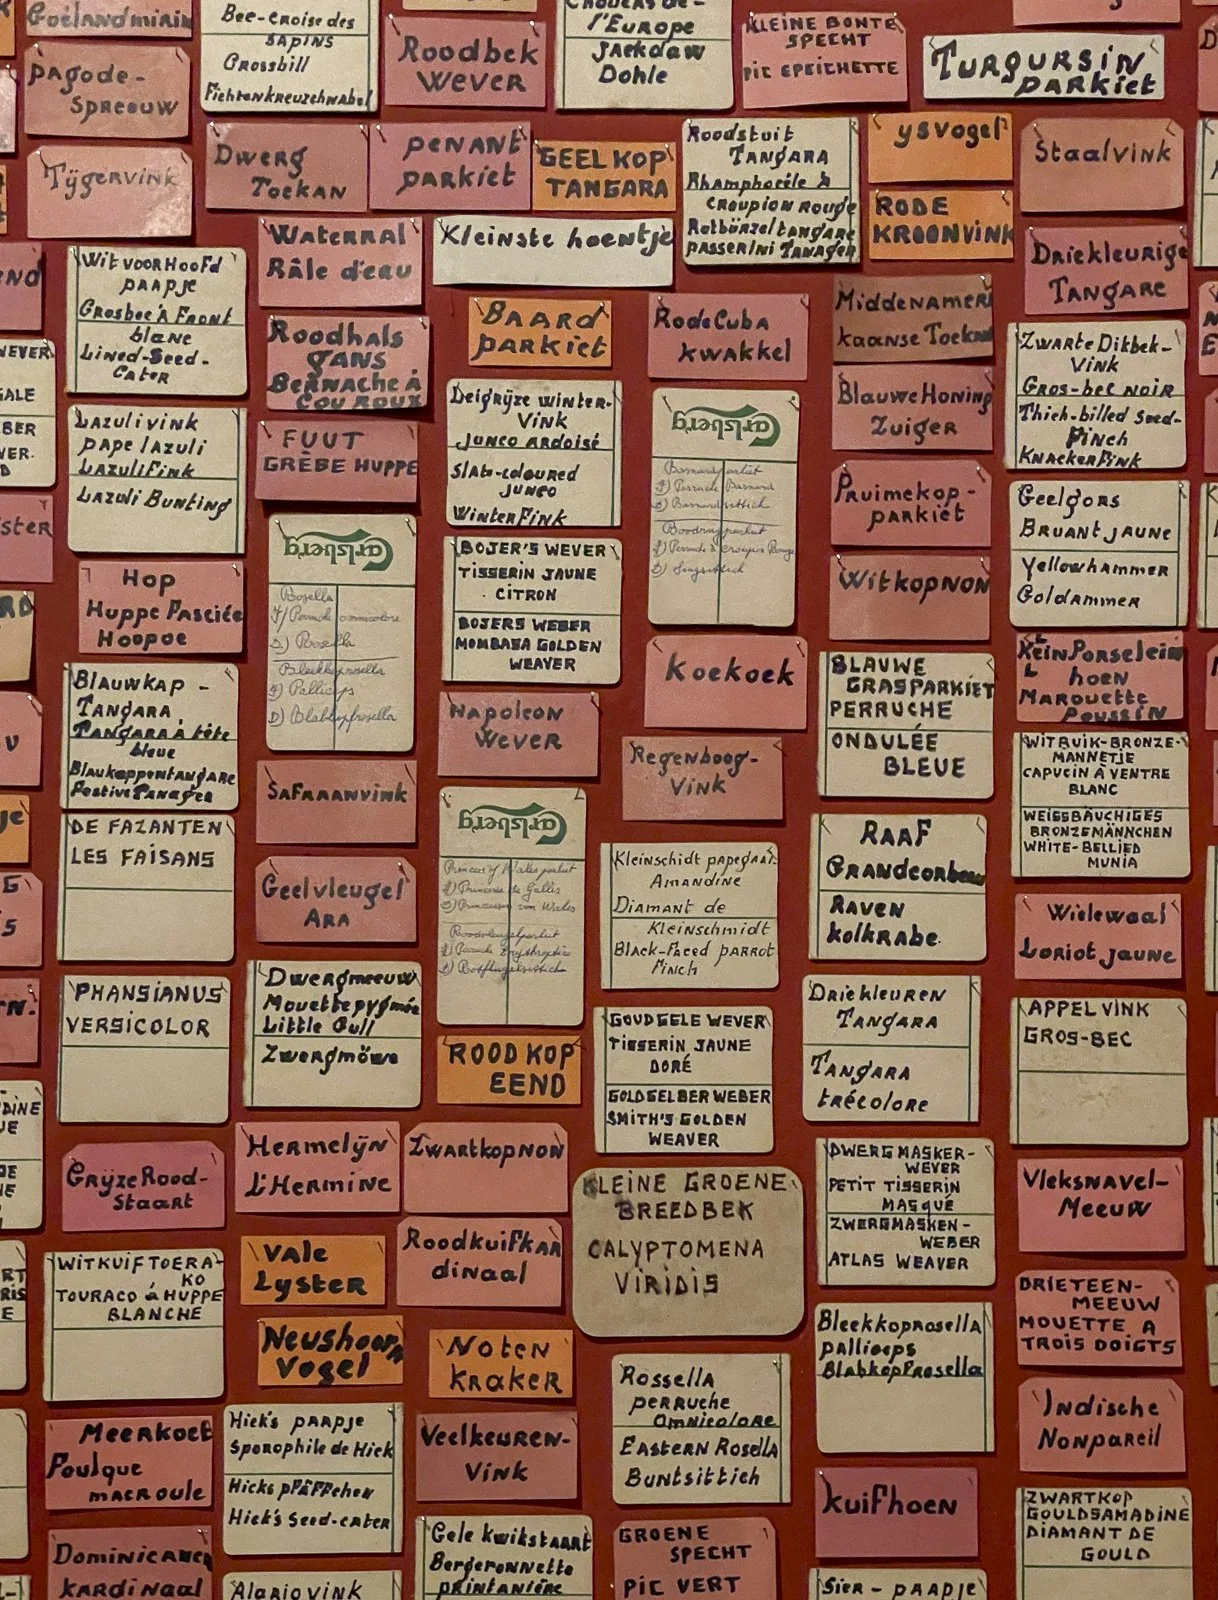 Goelandmirin
Bec-croise des
SAPINS
Crossbill
Fichtenkreuzschnabel
Roodbek
Wever
l'Europe
Jackdaw
Dohle
KLEINE BONTE
SPECHT
PIC EPEICHETTE
TURQURSIN
PARKIET
PAGODE-
SPREEUW
Tÿgervink
Dwerg
Toekan
PENANT
PARKIET
GEEL KOP
TANGARA
Roodstuit
TANGARA
Rhamphocèle à
croupion Rouge
Rotbürzeltangare
PASSERINI TANAGER
YSVogel
RODE
KROONVINK
Staalvink
Waterral
Râle d'eau
Kleinste hoentje
Driekleurige
TANGARE
WitvoorHoofd
PAAPje
Grosbec à Front
blanc
Lined-Seed-
Eater
Roodhals
GANS
Bernache à
COU ROUX
BAARD
PARKIET
RodeCuba
kwakkel
Middenamer
kaanse Toekan
ZWARTE Dikbek-
VINK
Gros-bec NOIR
Thick-billed Seed-
Finch
KNACKERFINK
Lazulivink
pape lazuli
LAZULIFink
Lazuli Bunting
FUUT
GRÈBE HUPPE
Deigrÿze winter-
Vink
Junco Ardoisé
Slate-coloured
Junco
WinterFink
Carlsberg
Barnardparkiet
F) Perruche Barnard
D) Barnardsittich
Roodrugparkiet
F) Perruche à croupion Rouge
D) Singsittich
BlauweHoning
Zuiger
Pruimekop-
parkiet
Geelgors
BRUANT JAUNE
Yellowhammer
Goldammer
HOP
Huppe Fasciée
Hoopoe
Carlsberg
Rosella
F) Perruche omnicolore
D) Rosella
Bleekkoprosella
F) Palliceps
D) Blabkopfrosella
BOJER'S WEVER
TISSERIN JAUNE
CITRON
BOJERS WEBER
MOMBASA GOLDEN
WEAVER
WITKOPNON
Koekoek
BLAUWE
GRASPARKIET
PERRUCHE
ONDULÉE
BLEUE
KleinPorselein
hoen
MAROUETTE
Poussin
BLAUWKAP-
TANGARA
TANGARA à tête
bleue
Blaukappentangare
Festive Tanager
Napoleon
Wever
Regenboog-
Vink
WITBUIK-BRONZE-
MANNETJE
CAPUCIN À VENTRE
BLANC
WEISSBÄUCHIGES
BRONZEMÄNNCHEN
WHITE-BELLIED
MUNIA
SAFRAANVINK
DE FAZANTEN
LES FAISANS
Carlsberg
Princes of Wales parkiet
F) Princesse de Galles
D) Prinzessin von Wales
Roodvleugelparkiet
F) Perruche Erythroptère
D) Rotflügelsittich
Kleinschidt papegaai-
Amandine
Diamant de
Kleinschmidt
Black-faced parrot
finch
RAAF
Grandcorbeau
RAVEN
kolkrabe.
Geelvleugel
ARA
Wielewaal
Loriot jaune
PHANSIANUS
VERSICOLOR
Dwergmeeuw
Mouettepygmée
Little Gull
Zwergmöwe
ROOD KOP
EEND
GOUDGELE WEVER
TISSERIN JAUNE
DORÉ
GOLDGELBER WEBER
SMITH'S GOLDEN
WEAVER
Driekleuren
TANGARA
TANGARA
trécolore
APPEL VINK
GROS-BEC
GrÿzeRood-
Staart
Hermelÿn
L'Hermine
ZWARTKOPNON
KLEINE GROENE
BREEDBEK
CALYPTOMENA
VIRIDIS
DWERGMASKER-
WEVER
PETIT TISSERIN
MASQUÉ
ZWERGMASKEN-
WEBER
ATLAS WEAVER
Vleksnavel-
Meeuw
WITKUIFTOERA-
KO
TOURACO à HUPPE
BLANCHE
VALE
Lyster
Roodkuifkar
dinaal
Neushoorn
Vogel
NOTEN
KRAKER
Bleekkoprosella
palliceps
Blabkopfrosella
DRIETEEN-
MEEUW
MOUETTE A
TROIS DOIGTS
Rossella
perruche
Omnicolore
EASTERN Rosella
Buntsittich
Indische
Nonpareil
Meerkoet
Foulque
MACROULE
Hick's paapje
Sporophile de Hick
Hicks pfäffchen
Hick's Seed-eater
Veelkeuren-
Vink
Kuifhoen
ZWARTKOP
GOULDSAMADINE
DIAMANT DE
GOULD
Dominicaner
kardinaal
Alariovink
Gele kwikstaart
Bergeronnette
printanière
GROENE
SPECHT
PIC VERT
Sier-PAAPJE